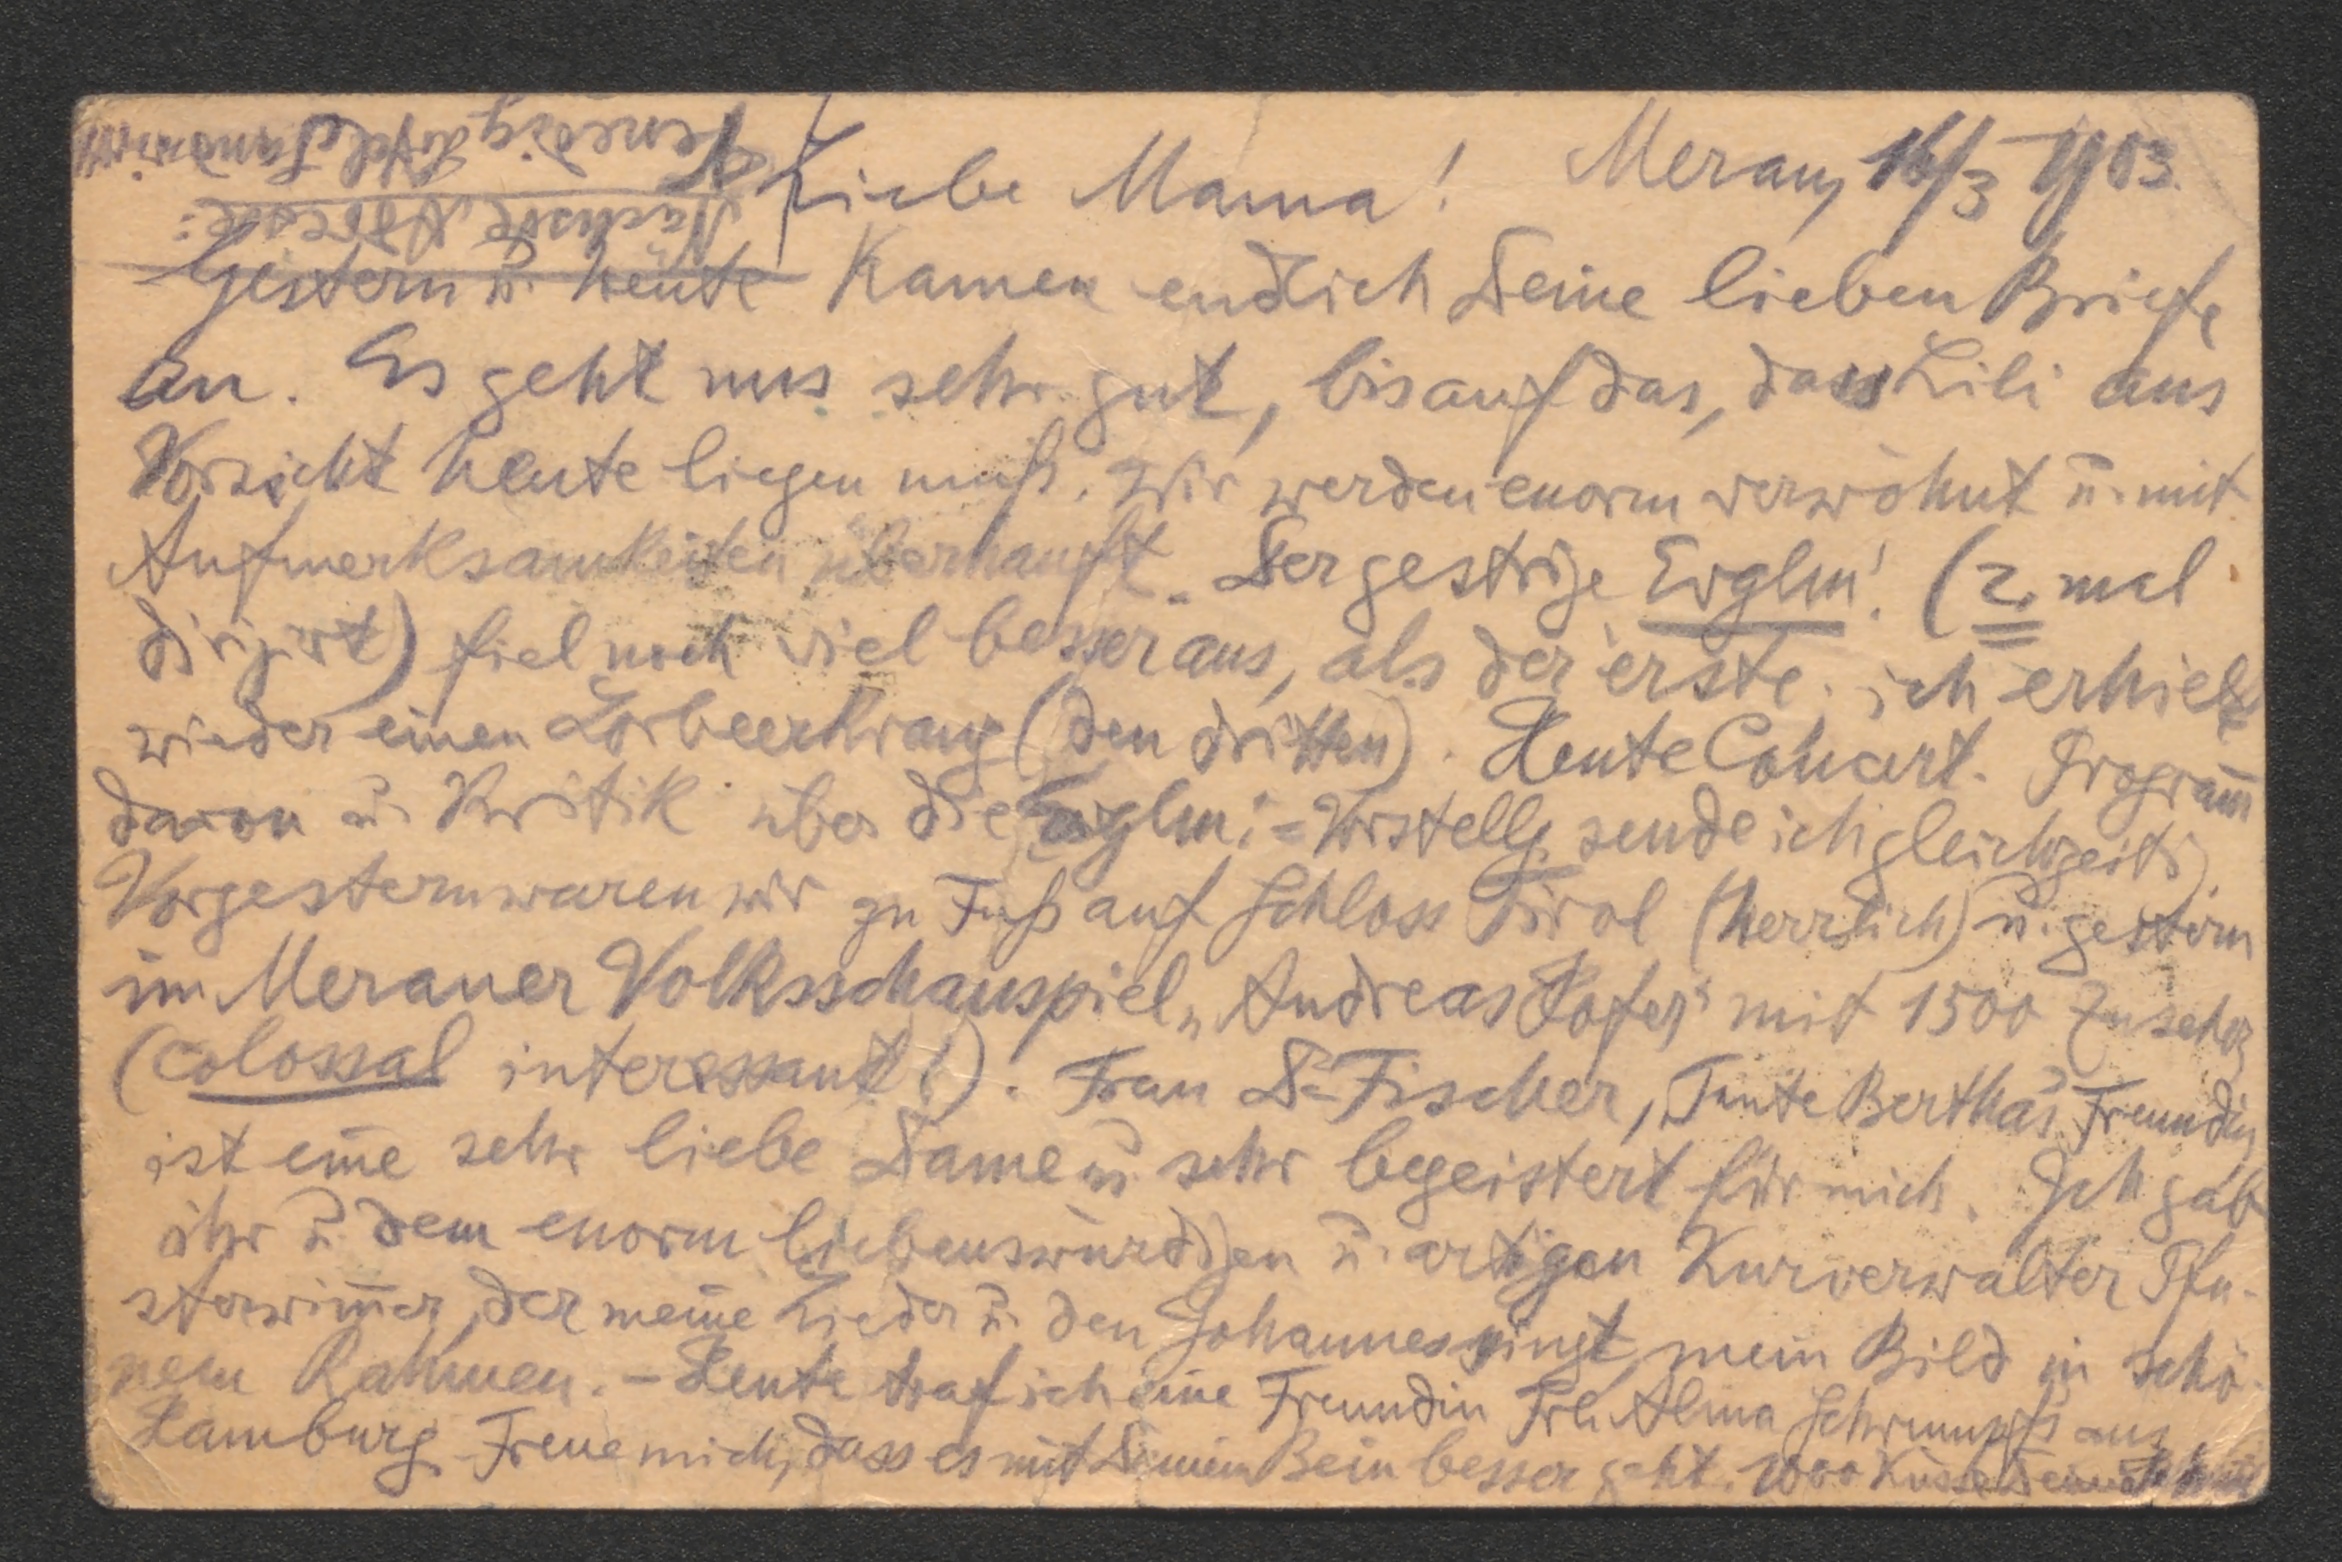 Nächste Adresse:
Venedig Hôtel Sandwirth
Liebe Mama! Meran, 16/3 1903.
Gestern u. heute kamen endlich Deine lieben Briefe
an. Es geht uns sehr gut, bis auf das, dass Lili aus
Vorsicht heute liegen muß. Wir werden enorm verwöhnt u. mit
Aufmerksamkeiten überhäuft. Der gestrige Evglm! (2. mal
dirigirt) fiel noch viel besser aus, als der erste. ich erhielt
wieder einen Lorbeerkranz (den dritten). Heute Concert. Program̅
davon u. Kritik über die Evglm:=Vorstellg sende ich gleichzeitig.
Vorgestern waren wir zu Fuß auf Schloss Tirol (herrlich) u. gestern
im Meraner Volksschauspiel „Andreas Hofer" mit 1500 Zuseher
(colossal interessant!). Frau Dr Fischer, Tante Bertha's Freundin
ist eine sehr liebe Dame u. sehr begeistert für mich. Ich gab
ihr u. dem enorm liebenswürdigen u. artigen Kurverwalter Pfu-
sterwim̅er, der meine Lieder u. den Johannes singt, mein Bild in schö-
nem Rahmen. - Heute traf ich eine Freundin Frl. Alma aus
Hamburg. Freue mich, dass es mit Deinem Bein besser geht. 1000 Küsse Dein